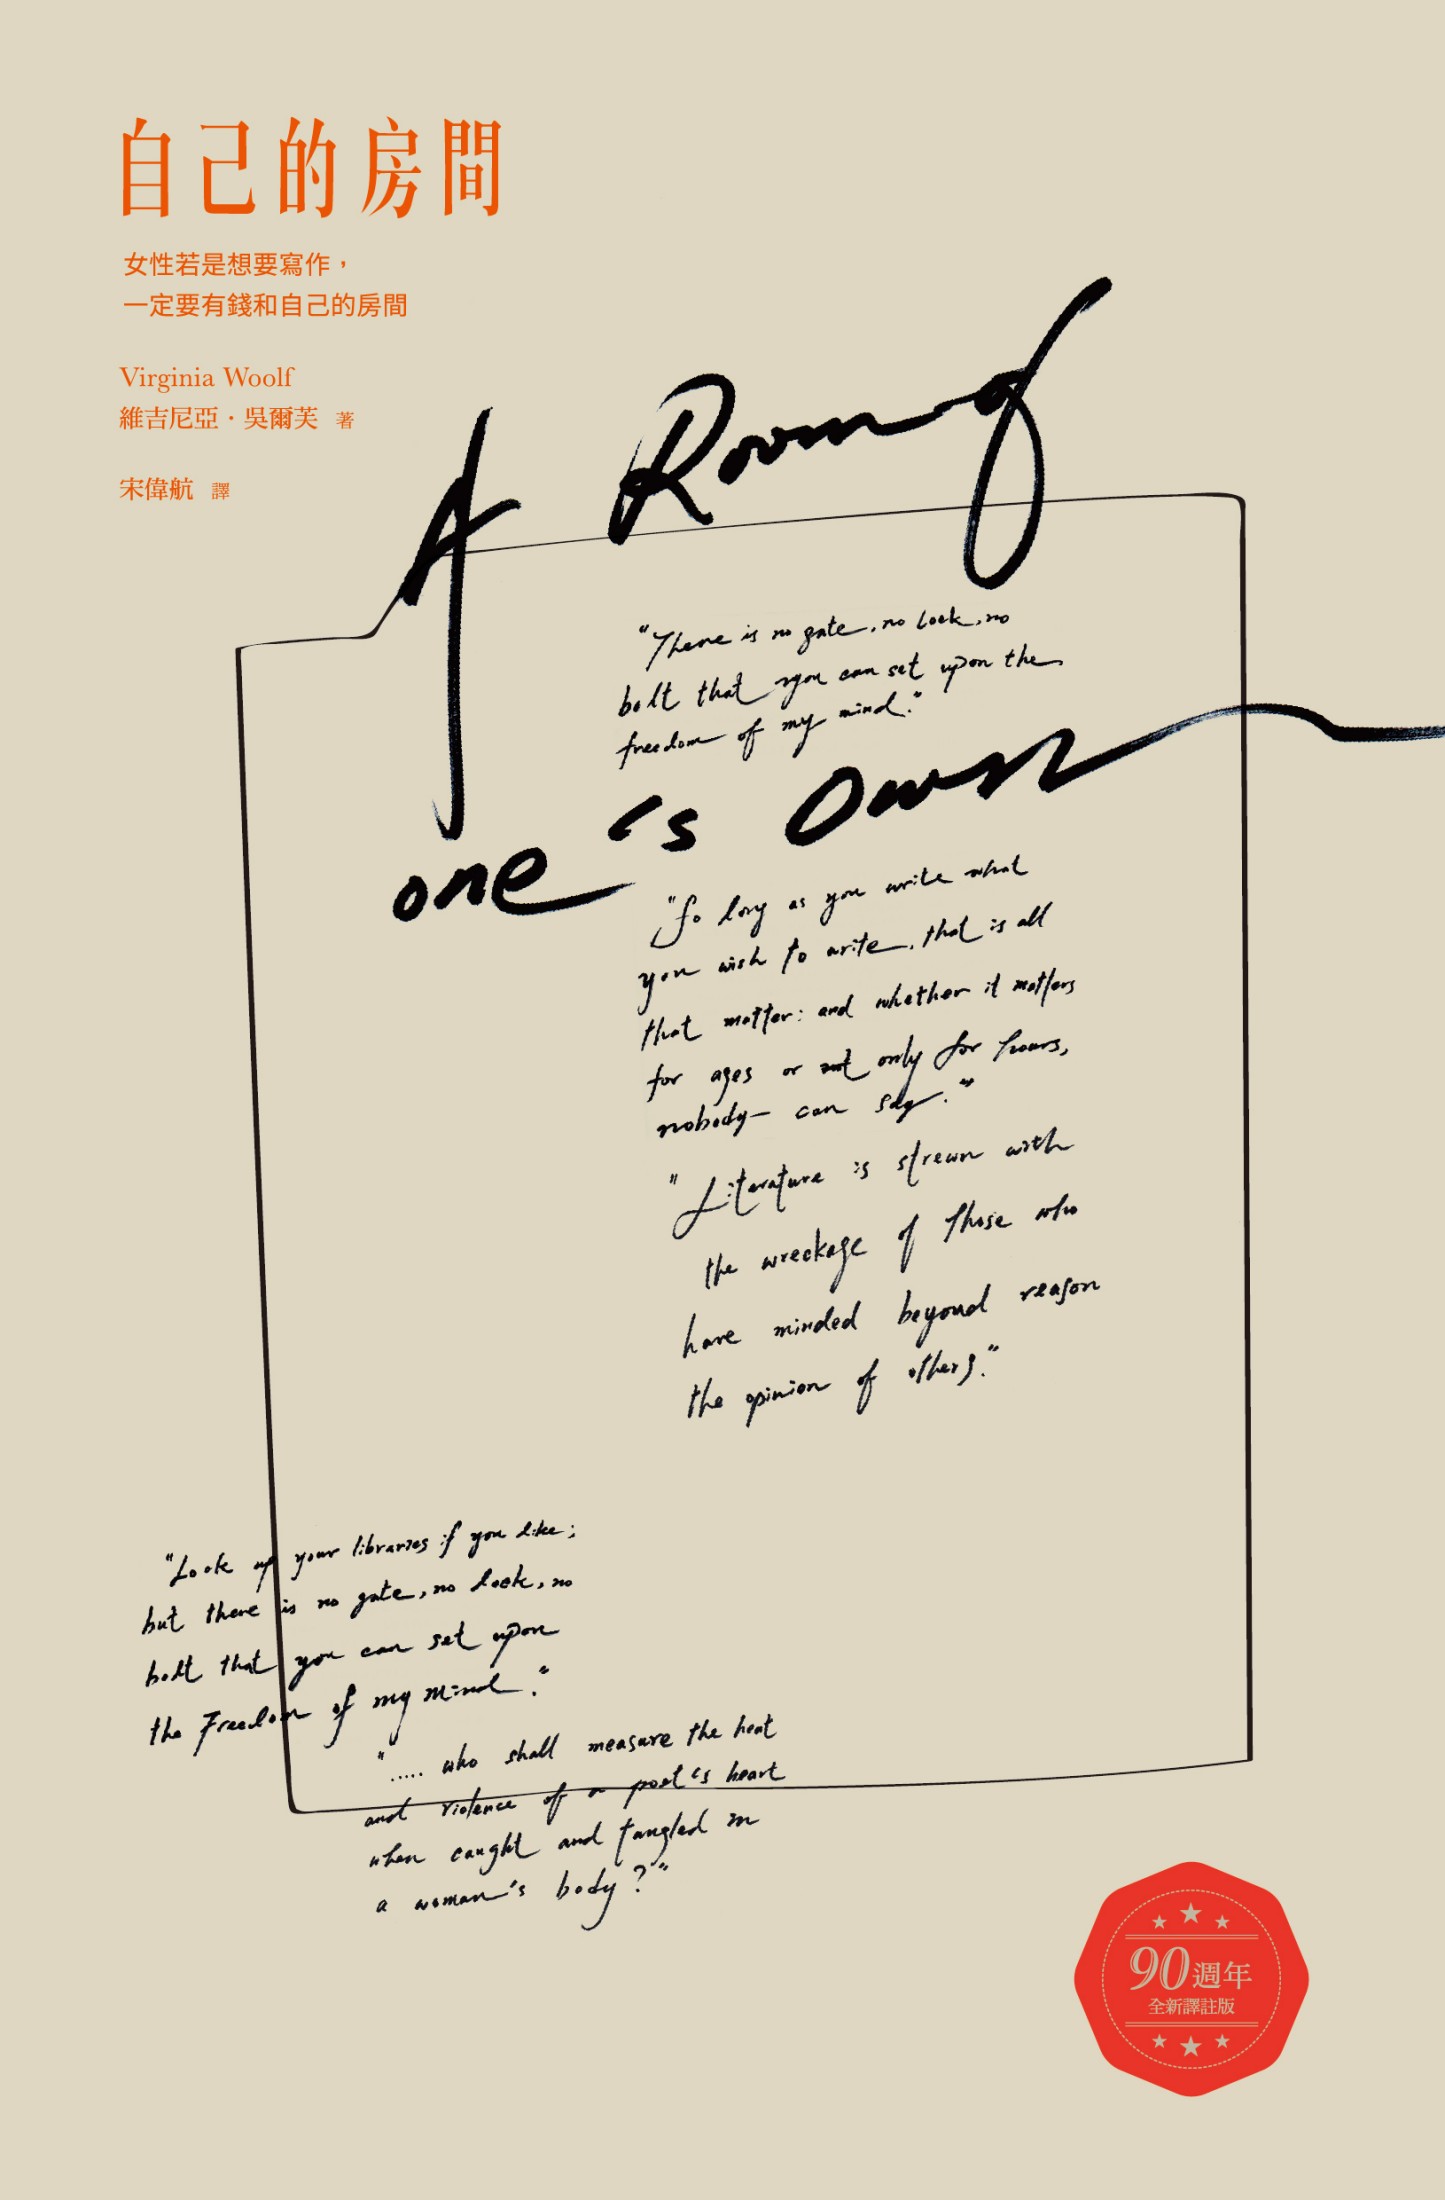 自己的房間
女性若是想要寫作，
一定要有錢和自己的房間
Virginia Woolf
維吉尼亞・吳爾芙 著
宋偉航 譯
A Room of
"There is no gate, no lock, no
bolt that you can set upon the
freedom of my mind."
one's own
"So long as you write what
you wish to write, that is all
that matter: and whether it matters
for ages or not only for hours,
nobody can say."
"Literature is strewn with
the wreckage of those who
have minded beyond reason
the opinion of others."
"Look up your libraries if you like;
but there is no gate, no lock, no
bolt that you can set upon
the Freedom of my mind."
"..... who shall measure the heat
and violence of a poet's heart
when caught and tangled in
a woman's body?"
90週年
全新譯註版